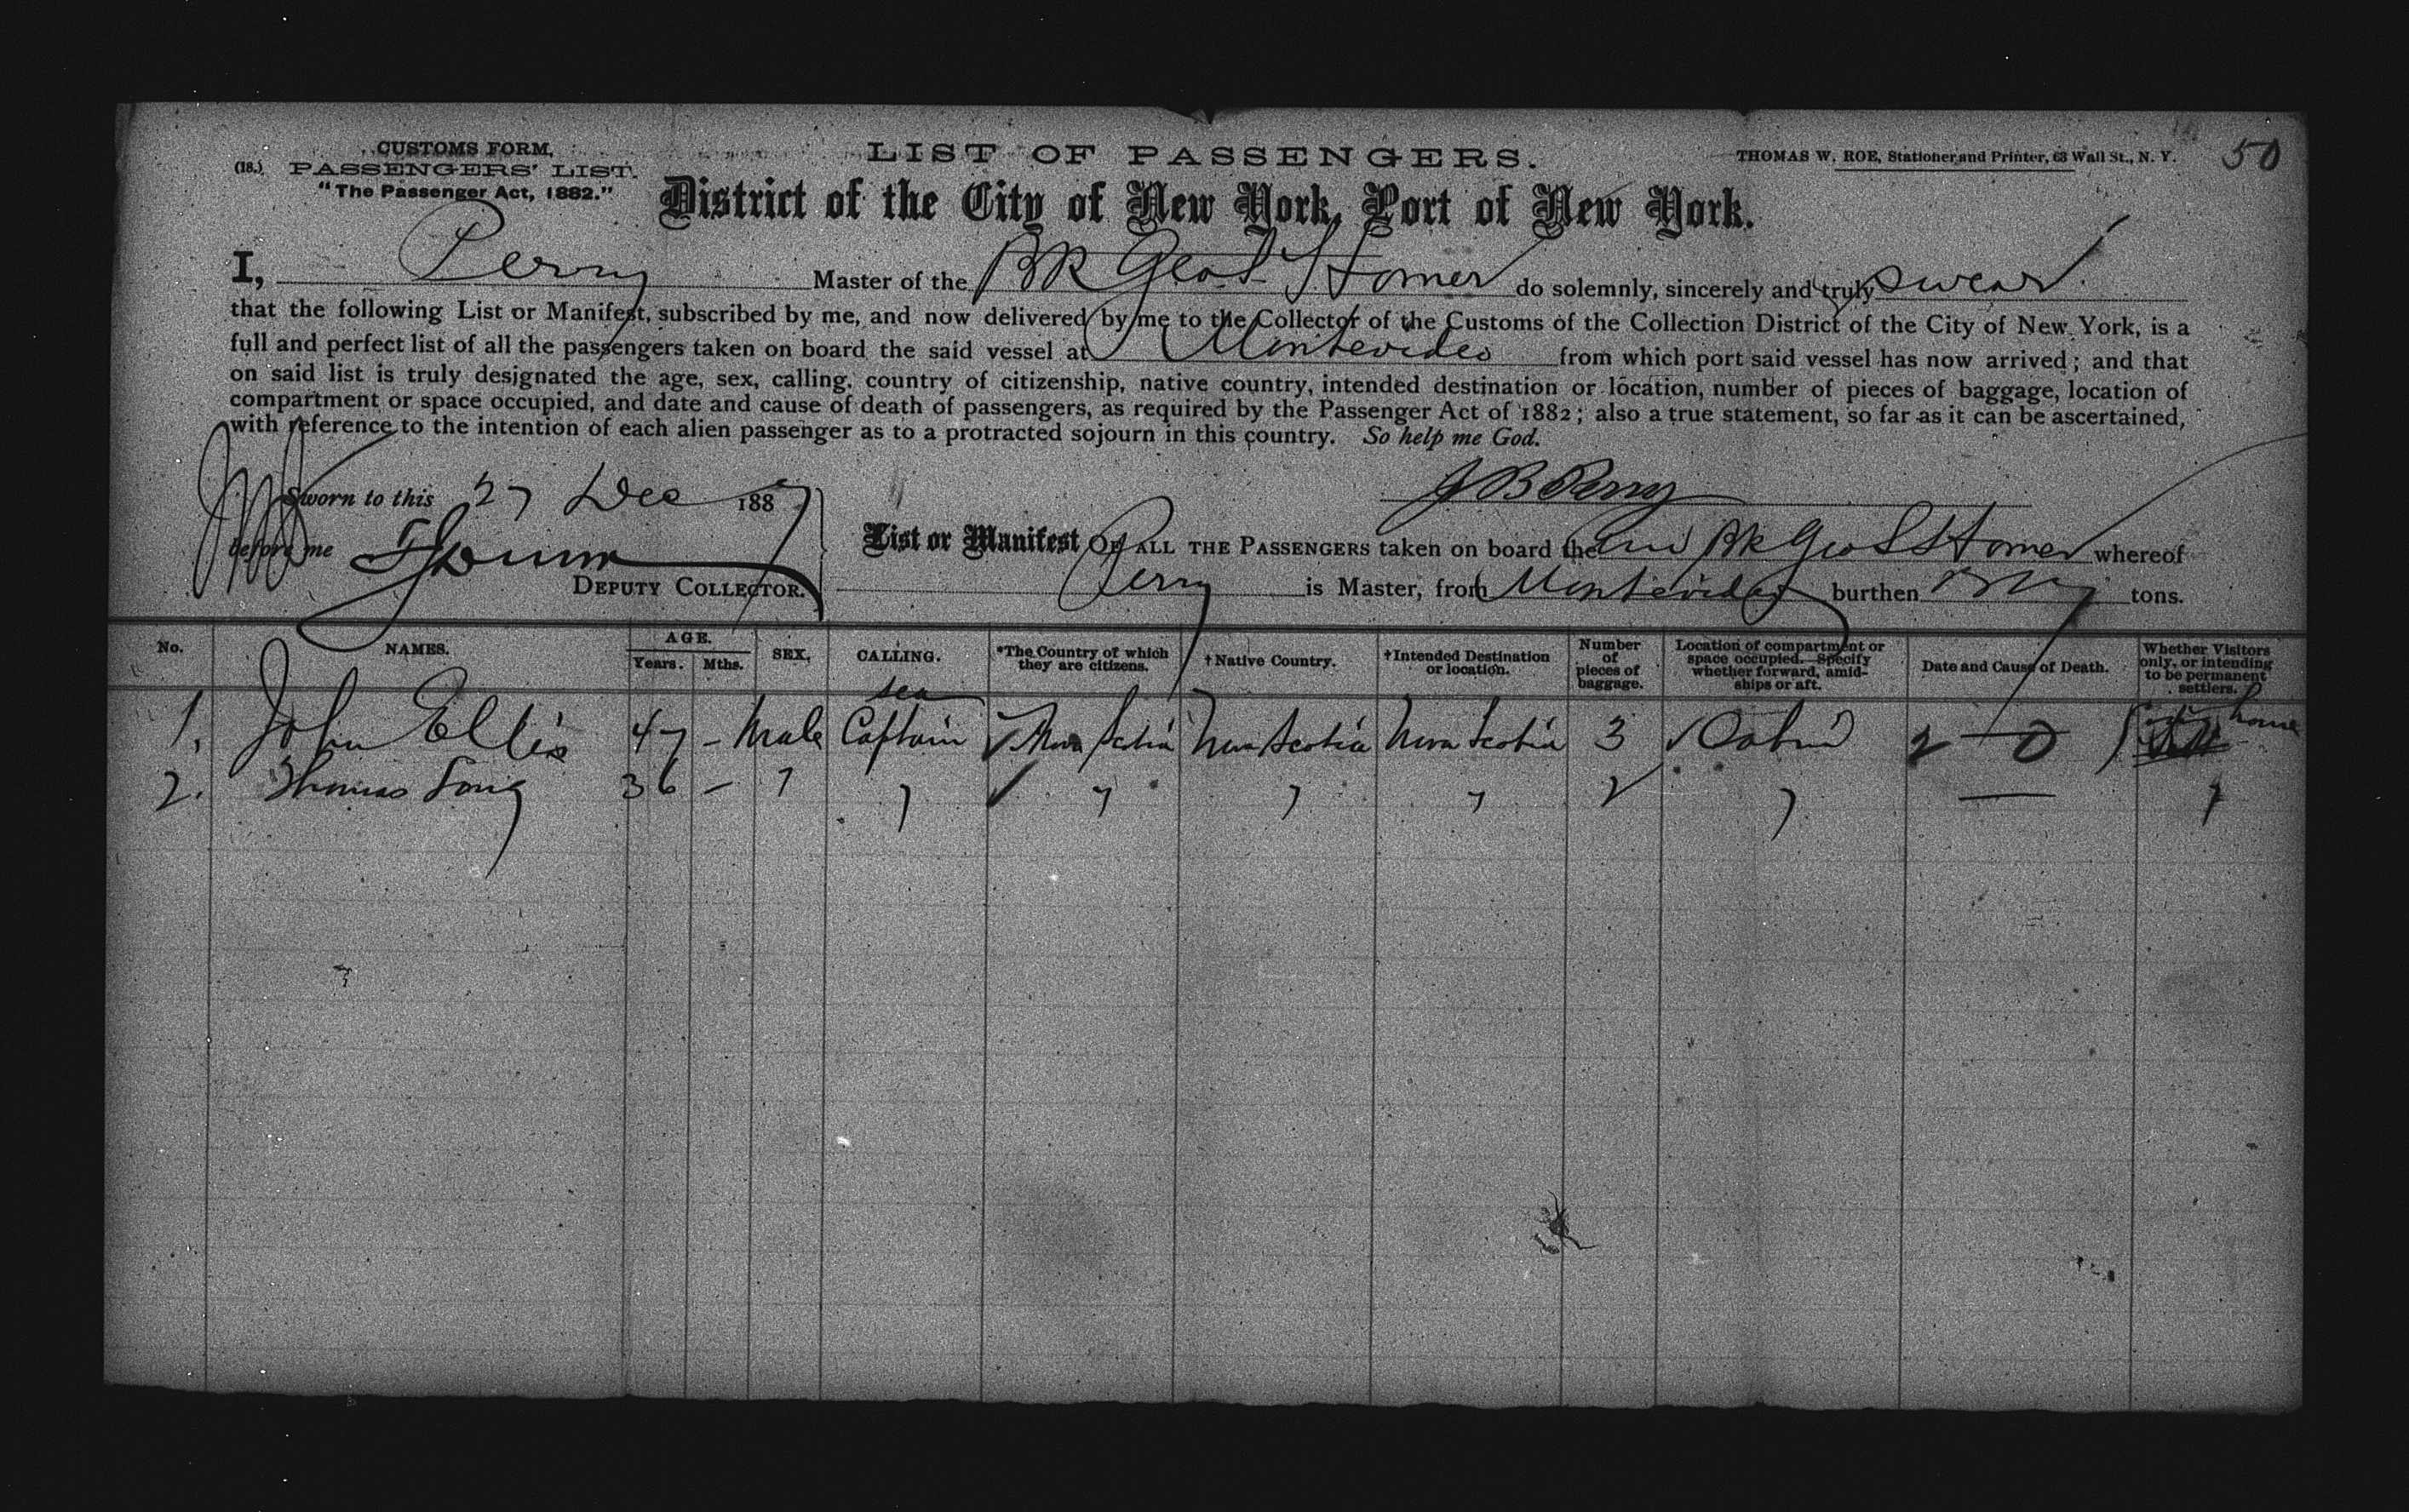 CUSTOMS FORM,
(18.) PASSENGERS' LIST.
"The Passenger Act, 1882."
LIST OF PASSENGERS.
THOMAS W. ROE, Stationer and Printer, 63 Wall St., N. Y.
50
District of the City of New York, Port of New York.
I, Perry Master of the BK Geo S Homer do solemnly, sincerely and truly swear
that the following List or Manifest, subscribed by me, and now delivered by me to the Collector of the Customs of the Collection District of the City of New York, is a
full and perfect list of all the passengers taken on board the said vessel at Montevideo from which port said vessel has now arrived; and that
on said list is truly designated the age, sex, calling, country of citizenship, native country, intended destination or location, number of pieces of baggage, location of
compartment or space occupied, and date and cause of death of passengers, as required by the Passenger Act of 1882; also a true statement, so far as it can be ascertained,
with reference to the intention of each alien passenger as to a protracted sojourn in this country. So help me God.
J B Perry
Sworn to this 27 Dec 1887
before me
DEPUTY COLLECTOR.
List or Manifest OF ALL THE PASSENGERS taken on board the Am Bk Geo S Homer whereof
Perry is Master, from Montevideo burthen tons.
No. NAMES. AGE. Years. Mths. SEX, CALLING. *The Country of which they are citizens. †Native Country. †Intended Destination or location. Number of pieces of baggage. Location of compartment or space occupied. Specify whether forward, amidships or aft. Date and Cause of Death. Whether Visitors only, or intending to be permanent settlers.
1. John Ellis 47 - Male sea Captain Nova Scotia Nova Scotia Nova Scotia 3 Cabin 2 0 home
2. Thomas Long 36 - " " " " " 2 " — "